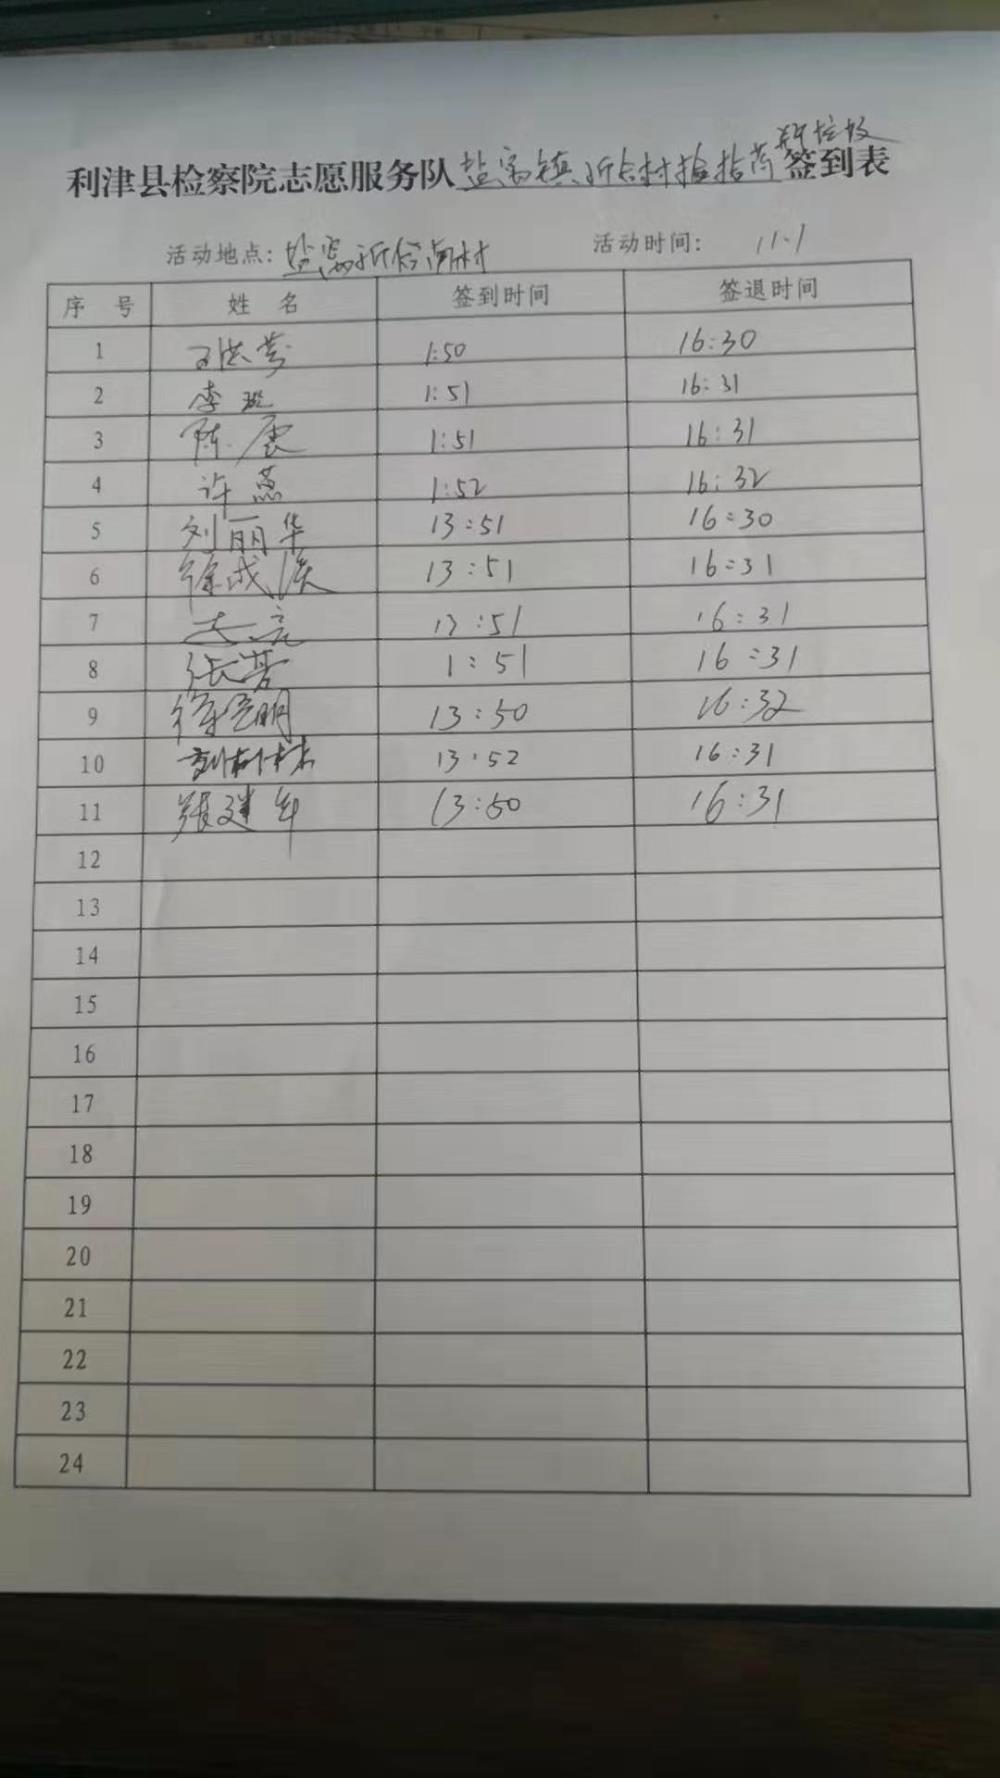 利津县检察院志愿服务队盐窝镇 签到表
活动地点: 盐窝 南村 活动时间: 11.1
序 号 姓 名 签到时间 签退时间
1 1:50 16:30
2 李 1:51 16:31
3 陈 1:51 16:31
4 许燕 1:52 16:32
5 刘丽华 13:51 16:30
6 徐成 13:51 16:31
7 13:51 16:31
8 张 1:51 16:31
9 徐 明 13:50 16:32
10 13:52 16:31
11 张建 13:50 16:31
12
13
14
15
16
17
18
19
20
21
22
23
24